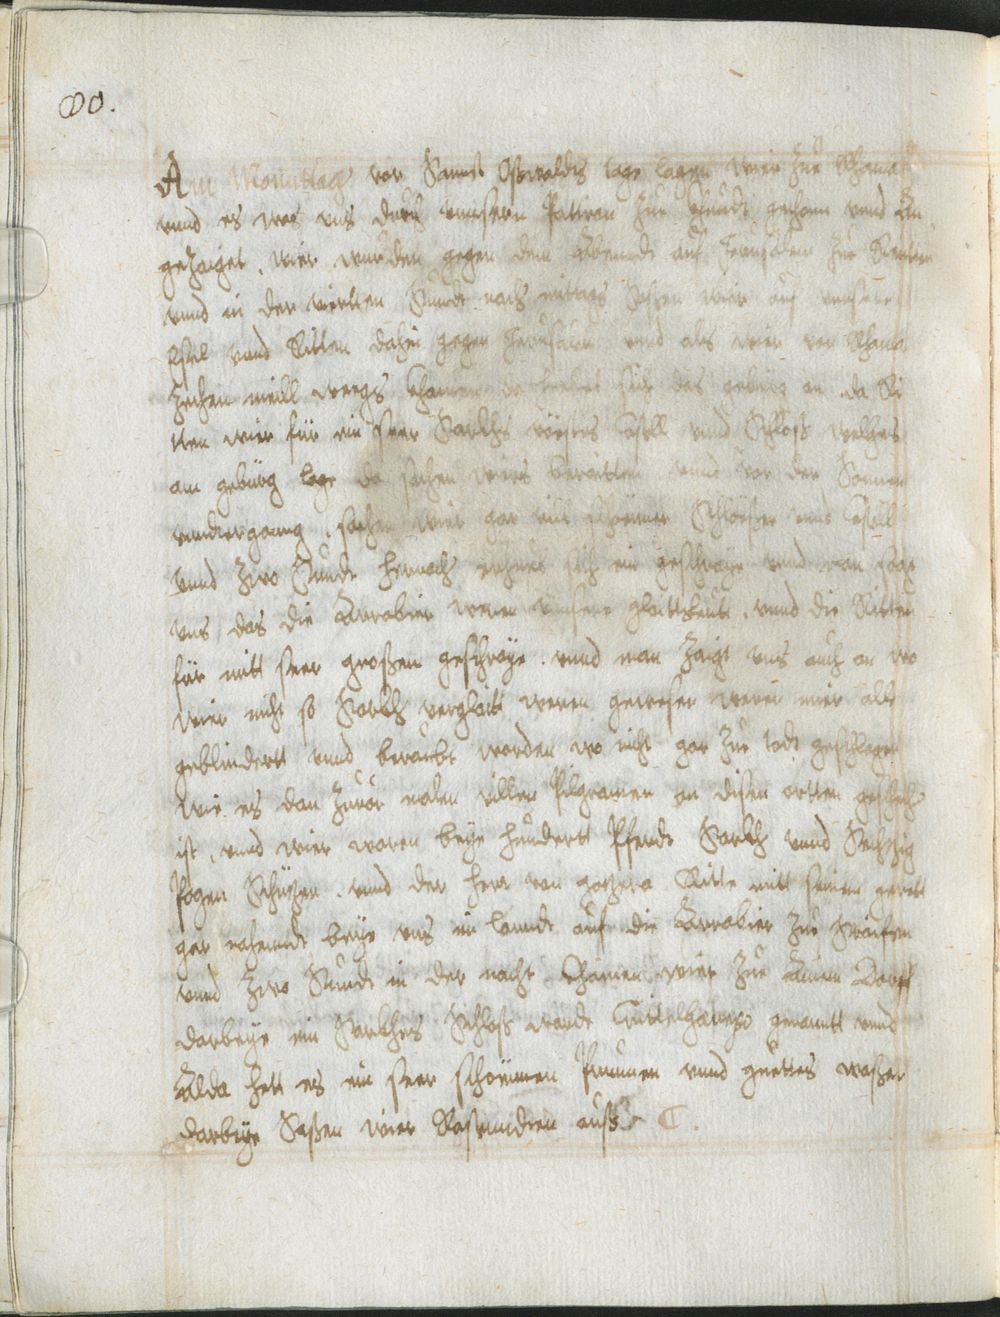 80.
Am Monnttag vor Sannct Oßwaldts tage lagen wier zue Rhama
vnnd es wos vns durch vnnsern Patron zue gethann vnnd An
gezaiget, wier wurden gegen dem Abenndt auf Jerusalem zue Reutten
vnnd in der vierten Stundt nach mittags Saßen wier auf vnnsere
Esel vnnd Ritten dahin gegen Jerusalem vnnd als wier von Rhama
zechen meill weegs khamen da hebet sich das gebürg an, da Ri
tten wier für ein seer Starkhs Castell vnnd Schloß welches
am gebürg lage da sachen wiers vnnd vor der Sonnen
vnndterganng, sachen wier gar vill schönner Schlösßer vnnd Castell
vnnd zwo Stundt hernach sich ein geschraye vnnd man sagt
vns, das die Arrabier weren vnnsere glaittsleut, vnnd die Ritten
für mitt seer großen geschraye, vnnd man zaigt vns auch an wo
wier nicht so Starkh verglaitt weren gewesen weren wier all
geblindertt vnnd beraubt worden wo nicht gar zue todt geschlagen
wie es dan zuuor malen villen Pilgramen an disen ortten geschech
ist, vnnd wier waren beye hundertt Pferdt Starkh vnnd Sechzig
Pogen Schüzen, vnnd der herr von gazera Ritte mitt seinem
gar nahenndt beye vns im lanndt auf die Arrabier zue Straifen
vnnd zwo Stundt in der nacht khamen wier zue Ainem Dorff
darbeye ein Starkhes Schloß wardt genanntt vnnd
Alda hett es ein seer schönnen Prunnen vnnd guettes waßer
darbeye Saßen wier Rastundten auß C.